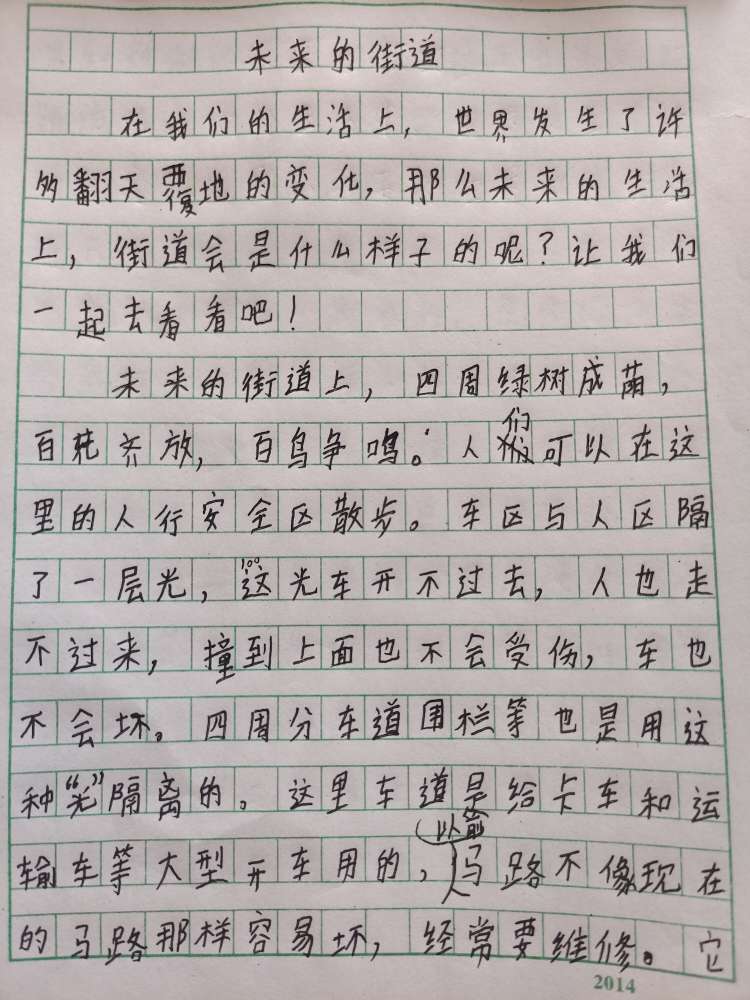 未来的街道
在我们的生活上，世界发生了许
多翻天覆地的变化，那么未来的生活
上，街道会是什么样子的呢？让我们
一起去看看吧！
未来的街道上，四周绿树成荫，
百花齐放，百鸟争鸣。人们可以在这
里的人行安全区散步。车区与人区隔
了一层光，这光车开不过去，人也走
不过来，撞到上面也不会受伤，车也
不会坏。四周分车道围栏等也是用这
种“光”隔离的。这里车道是给卡车和运
输车等大型开车用的，以前马路不像现在
的马路那样容易坏，经常要维修。它
2014